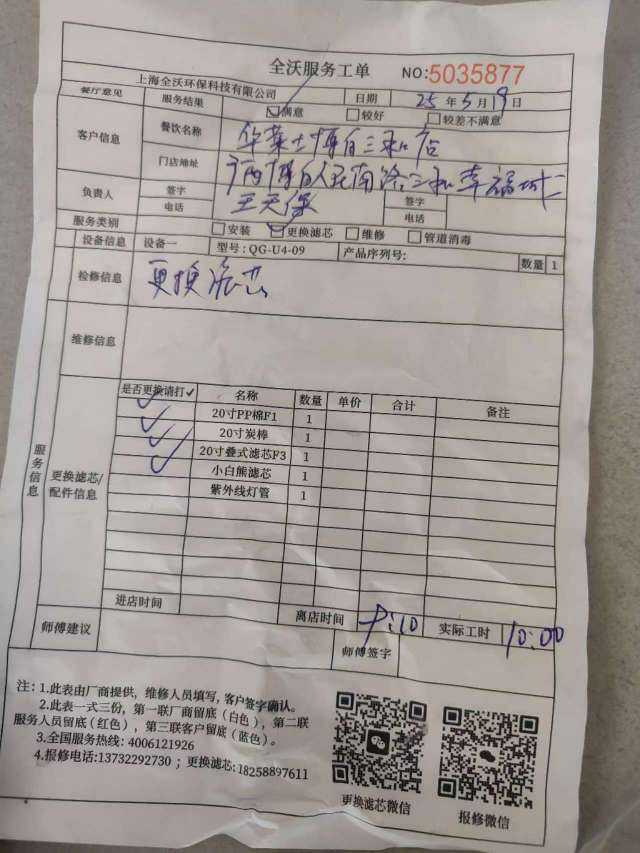 全沃服务工单 NO:5035877
上海全沃环保科技有限公司 日期 25年5月19日
餐厅意见 服务结果 ☑满意 □较好 □较差不满意
客户信息 餐饮名称 华莱士博白三和店
门店地址 广西博白人民南路三和幸福城
负责人 签字 王天保 签字
电话 电话
服务类别 □安装 ☑更换滤芯 □维修 □管道消毒
设备信息 设备一 型号:QG-U4-09 产品序列号: 数量 1
检修信息 更换滤芯
维修信息
服务信息
更换滤芯/配件信息
是否更换请打✓ 名称 数量 单价 合计 备注
✓ 20寸PP棉F1 1
✓ 20寸炭棒 1
✓ 20寸叠式滤芯F3 1
✓ 小白熊滤芯 1
紫外线灯管 1
进店时间 离店时间 9:10 实际工时 10:00
师傅建议 师傅签字
注：1.此表由厂商提供，维修人员填写，客户签字确认。
2.此表一式三份，第一联厂商留底（白色），第二联
服务人员留底（红色），第三联客户留底（蓝色）。
3.全国服务热线: 4006121926
4.报修电话:13732292730；更换滤芯:18258897611
更换滤芯微信 报修微信